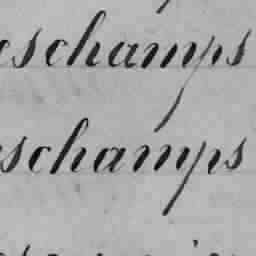 eschamps
eschamps